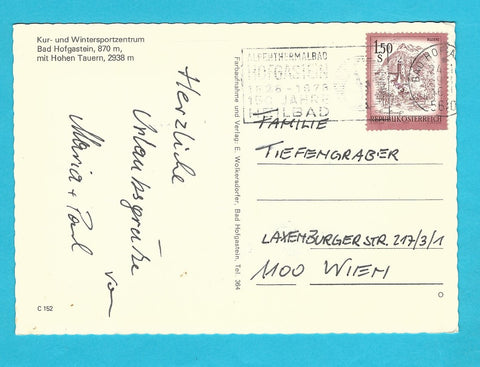 Kur- und Wintersportzentrum
Bad Hofgastein, 870 m,
mit Hohen Tauern, 2938 m
Herzliche
Urlaubsgrüße
von
Maria + Paul
C 152
Farbaufnahme und Verlag: E. Wolkersdorfer, Bad Hofgastein, Tel. 364
ALPENTHERMALBAD
HOFGASTEIN
1828-1978
JAHRE
HEILBAD
1.50
S
REPUBLIK ÖSTERREICH
FAMILIE
TIEFENGRABER
LAXENBURGER STR. 217/3/1
1100 WIEN